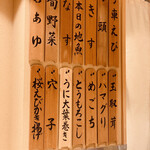 車えび
頭
きす
本日の地魚
なす
旬野菜
あゆ
玉取茸
ハマグリ
めごち
とうもろこし
うに大葉巻き
穴子
桜えびかき揚げ